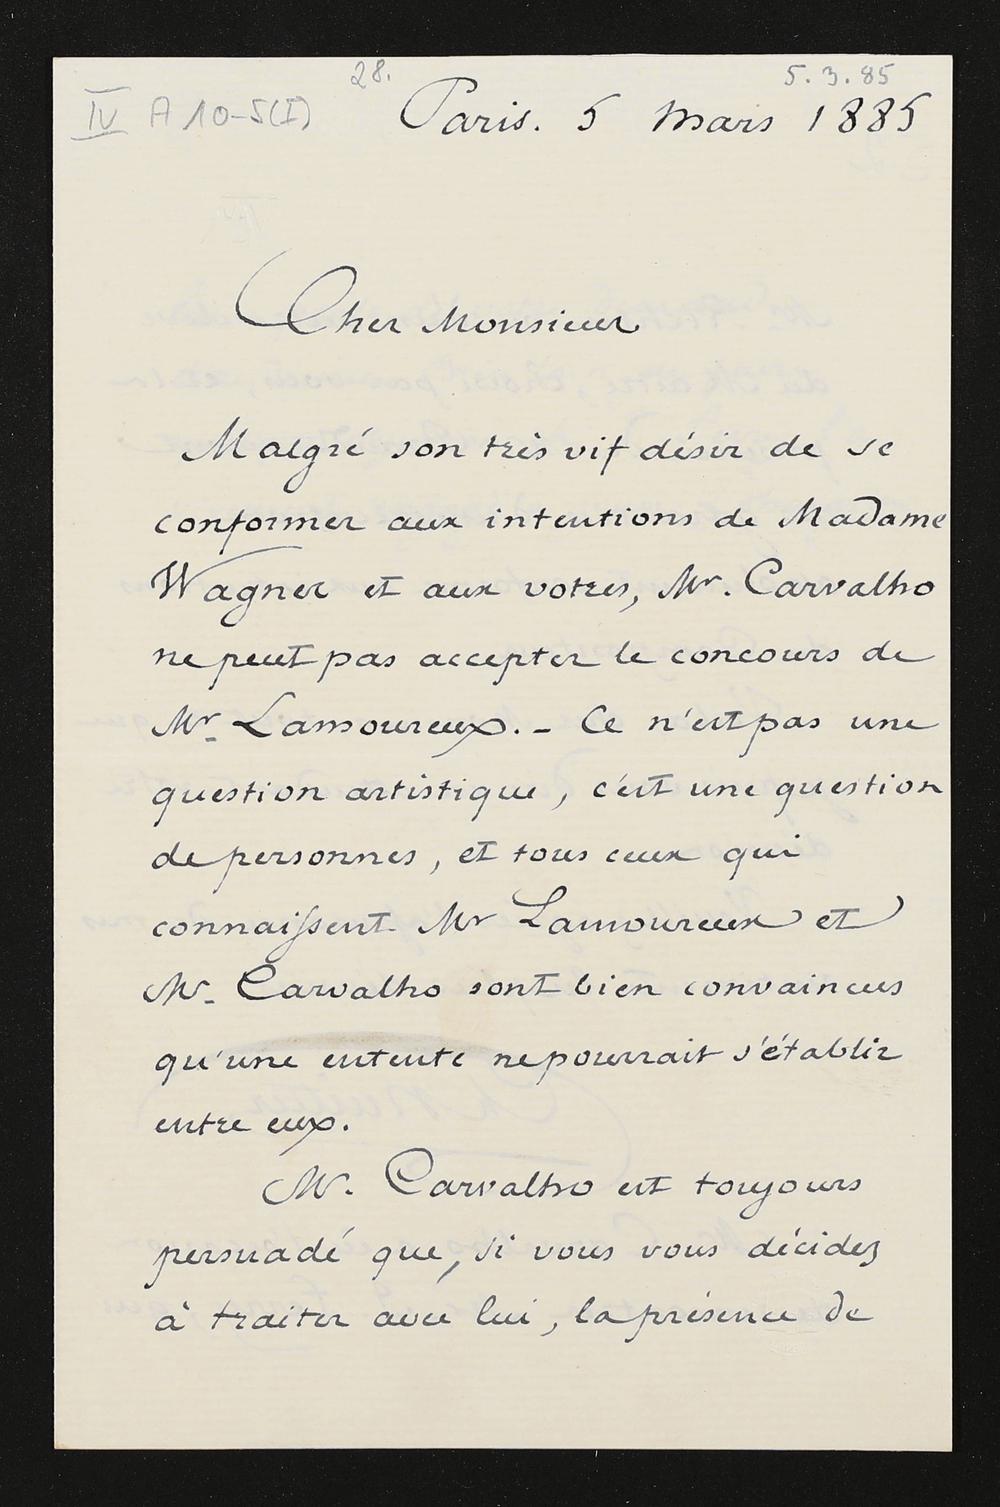 28.
5.3.85
IV A 10-5(I)
Paris. 5 Mars 1885
Cher Monsieur
Malgré son très vif désir de se
conformer aux intentions de Madame
Wagner et aux votres, Mr. Carvalho
ne peut pas accepter le concours de
Mr. Lamoureux. - Ce n'est pas une
question artistique, c'est une question
de personnes, et tous ceux qui
connaissent Mr Lamoureux et
Mr. Carvalho sont bien convaincus
qu'une entente ne pourrait s'établir
entre eux.
Mr. Carvalho est toujours
persuadé que, si vous vous décidez
à traiter avec lui, la présence de